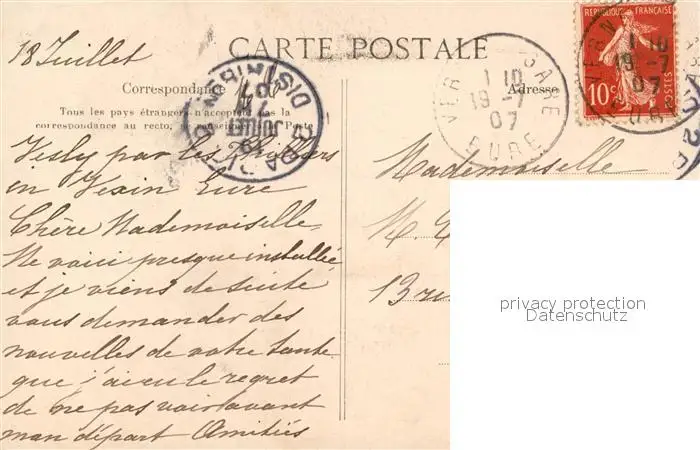 18 Juillet
CARTE POSTALE
Correspondance
Adresse
Tous les pays étrangers n'acceptent pas la
correspondance au recto, se renseigner à la Poste
RÉPUBLIQUE FRANÇAISE
10c
POSTES
VER GARE
1 10
19 - 7
07
EURE
1 10
19 - 7
07
PARIS
DISTRIBUTION
19
JUIL
07
Vesly par les Thilliers
en Vexin Eure
Chère Mademoiselle,
Me voici presque installée
et je viens de suite
vous demander des
nouvelles de votre tante
que j'ai eu le regret
de ne pas voir avant
mon départ Amitiés
Mademoiselle
M.
13 rue
privacy protection
Datenschutz